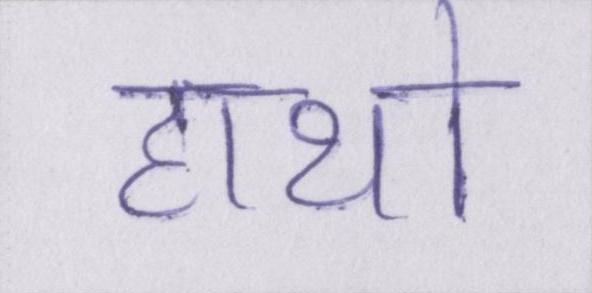 हाथो